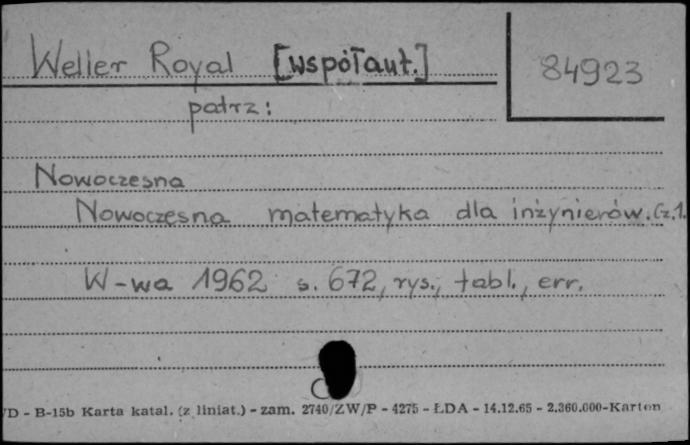 Weller Royal [współaut.]
84923
patrz:
Nowoczesna
Nowoczesna matematyka dla inżynierów. Cz.1.
W-wa 1962 s. 672, rys., tabl., err.
/D - B-15b Karta katal. (z liniat.) - zam. 2740/ZW/P - 4275 - ŁDA - 14.12.65 - 2.360.000-Karton